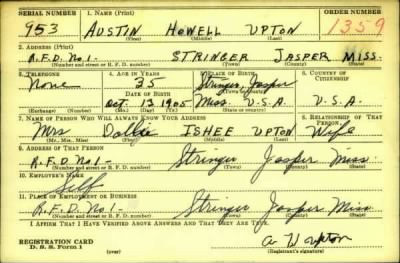 SERIAL NUMBER 1. NAME (Print) ORDER NUMBER
953 AUSTIN HOWELL UPTON 1359
(First) (Middle) (Last)
2. ADDRESS (Print)
R.F.D. No. 1- STRINGER JASPER MISS.
(Number and street or R. F. D. number) (Town) (County) (State)
3. TELEPHONE 4. AGE IN YEARS 5. PLACE OF BIRTH 6. COUNTRY OF CITIZENSHIP
None 35 Stringer Jasper
DATE OF BIRTH (Town) (County)
Oct. 13 1905 Miss. U.S.A. U.S.A.
(Exchange) (Number) (Mo.) (Day) (Yr.) (State) (Country)
7. NAME OF PERSON WHO WILL ALWAYS KNOW YOUR ADDRESS 8. RELATIONSHIP OF THAT PERSON
Mrs Dollie ISHEE UPTON Wife
(Mr., Mrs., Miss) (First) (Middle) (Last)
9. ADDRESS OF THAT PERSON
R.F.D. No. 1- Stringer Jasper Miss.
(Number and street or R. F. D. number) (Town) (County) (State)
10. EMPLOYER'S NAME
Self
11. PLACE OF EMPLOYMENT OR BUSINESS
R.F.D. No. 1- Stringer Jasper Miss.
(Number and street or R. F. D. number) (Town) (County) (State)
I AFFIRM THAT I HAVE VERIFIED ABOVE ANSWERS AND THAT THEY ARE TRUE.
REGISTRATION CARD
D. S. S. Form 1 (over) (Registrant's signature)